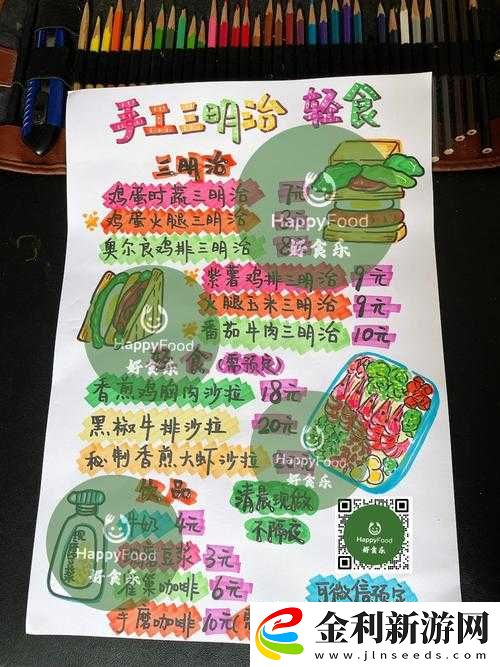 手工三明治 轻食
三明治
鸡蛋时蔬三明治 7元
鸡蛋火腿三明治
奥尔良鸡排三明治 8
紫薯鸡排三明治 9元
火腿玉米三明治 9元
番茄牛肉三明治 10元
轻食(需预定)
香煎鸡胸肉沙拉 18元
黑椒牛排沙拉 20元
秘制香煎大虾沙拉
饮品
清晨现做
不隔夜
牛奶 4元
豆浆 3元
雀巢咖啡 6元
手磨咖啡 10元
可微信预定
HappyFood
好食乐
HappyFood
好食乐
HappyFood
HappyFood
好食乐
HappyFood
好食乐
金利新游网
www.jlnseeds.com